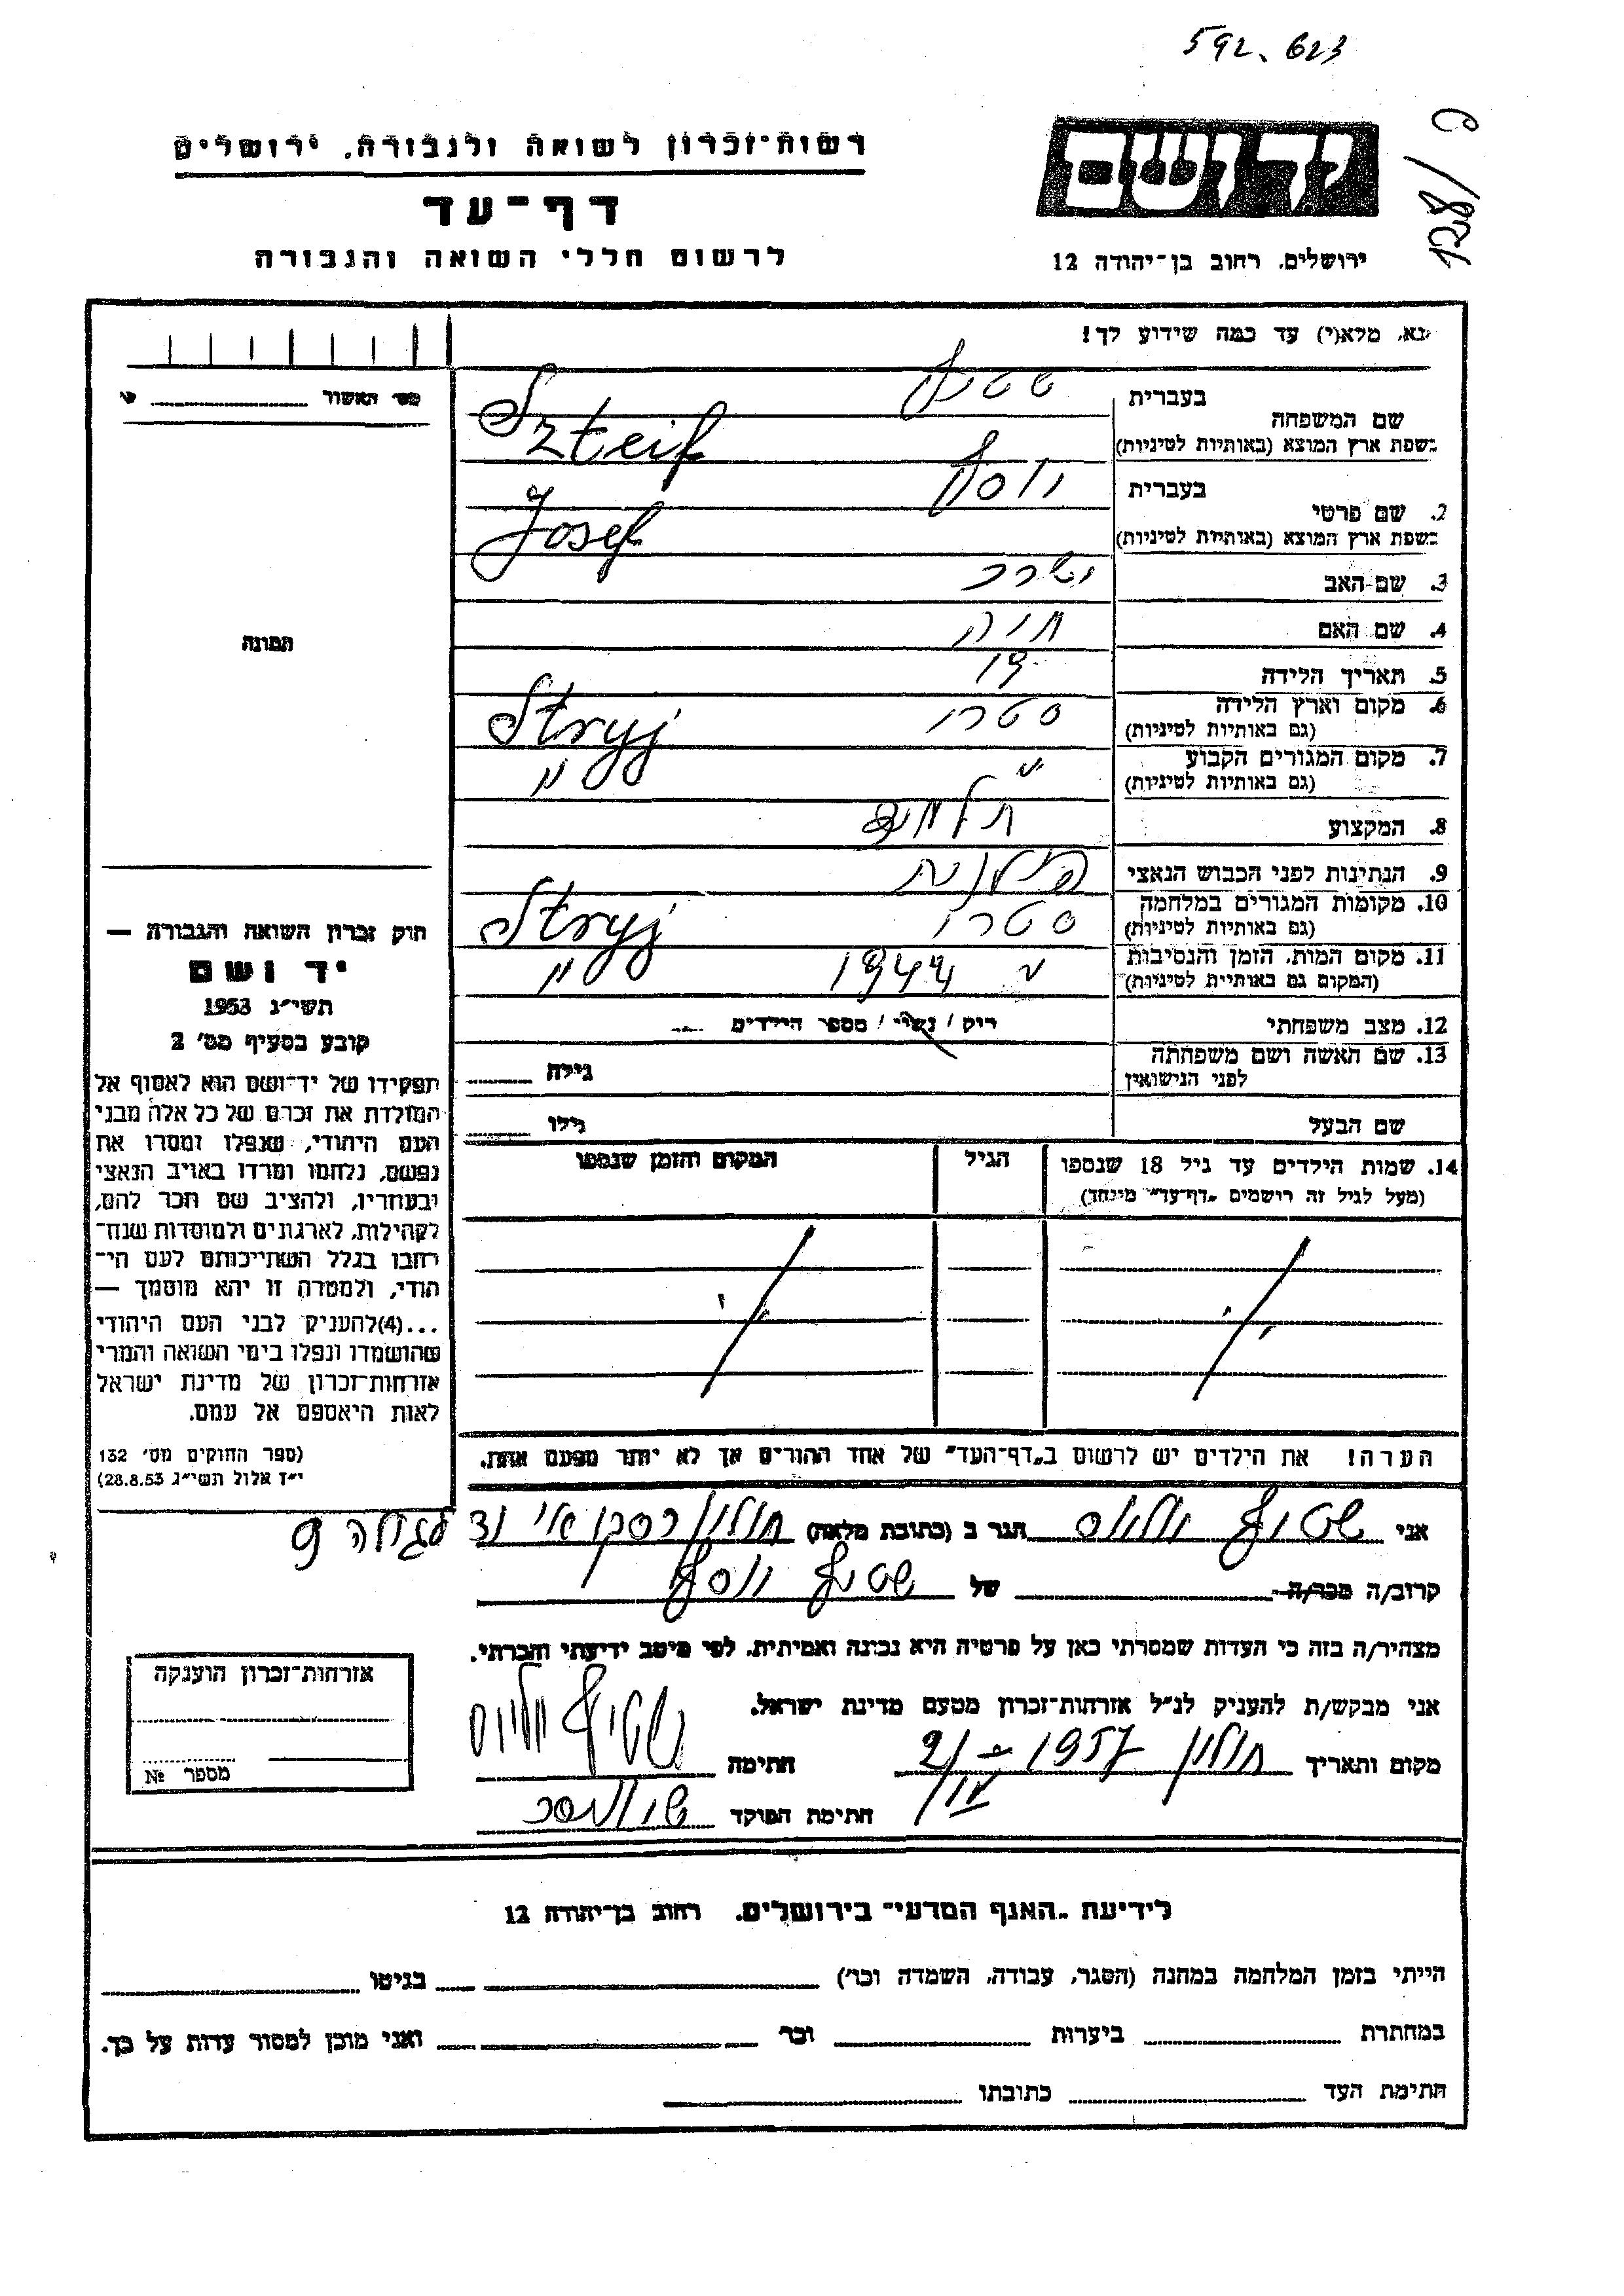 592.623
128/פ
רשות-זכרון לשואה ולגבורה, ירושלים
יד ושם
דף-עד
לרשום חללי השואה והגבורה
ירושלים, רחוב בן-יהודה 12
נא, מלא(י) עד כמה שידוע לך!
מס' האשור
שם המשפחה
בעברית
בשפת ארץ המוצא (באותיות לטיניות)
Szteif
2. שם פרטי
בעברית יוסף
בשפת ארץ המוצא (באותיות לטיניות)
Josef
3. שם-האב
4. שם האם חיה
5. תאריך הלידה 19
6. מקום וארץ הלידה סטרי Stryj
(גם באותיות לטיניות)
7. מקום המגורים הקבוע " "
(גם באותיות לטיניות)
8. המקצוע תלמיד
9. הנתינות לפני הכבוש הנאצי פולנית
10. מקומות המגורים במלחמה סטרי Stryj
(גם באותיות לטיניות)
11. מקום המות, הזמן והנסיבות " 1944 "
(המקום גם באותיות לטיניות)
12. מצב משפחתי רוק / נשוי / מספר הילדים
13. שם האשה ושם משפחתה
לפני הנישואין
גילה
שם הבעל גילו
14. שמות הילדים עד גיל 18 שנספו הגיל המקום והזמן שנספו
(מעל לגיל זה רושמים "דף-עד" מיוחד)
הערה! את הילדים יש לרשום ב"דף-העד" של אחד ההורים אך לא יותר מפעם אחת.
תמונה
חוק זכרון השואה והגבורה —
יד ושם
תשי"ג 1953
קובע בסעיף מס' 2
תפקידו של יד-ושם הוא לאסוף אל
המולדת את זכרם של כל אלה מבני
העם היהודי, שנפלו ומסרו את
נפשם, נלחמו ומרדו באויב הנאצי
ובעוזריו, ולהציב שם וזכר להם,
לקהילות, לארגונים ולמוסדות שנח-
רחבו בגלל השתייכותם לעם הי-
הודי, ולמטרה זו יהא מוסמך —
...(4)להעניק לבני העם היהודי
שהושמדו ונפלו בימי השואה והמרי
אזרחות-זכרון של מדינת ישראל
לאות היאספם אל עמם.
(ספר החוקים מס' 132
י"ז אלול תשי"ג 28.8.53)
אני שטיף הגר ב (כתובת מלאה) חולון
קרוב/ה מכר/ה של שטיף יוסף
מצהיר/ה בזה כי העדות שמסרתי כאן על פרטיה היא נכונה ואמיתית, לפי מיטב ידיעתי והכרתי.
אני מבקש/ת להעניק לנ"ל אזרחות-זכרון מטעם מדינת ישראל.
מקום ותאריך חולון 1957 חתימה
חתימת הפוקד
אזרחות-זכרון הוענקה
מספר №
לידיעת "האגף המדעי" בירושלים, רחוב בן-יהודה 12
הייתי בזמן המלחמה במחנה (הסגר, עבודה, השמדה וכו') בגיטו
במחתרת ביערות וכו' ואני מוכן למסור עדות על כך.
חתימת העד כתובתו